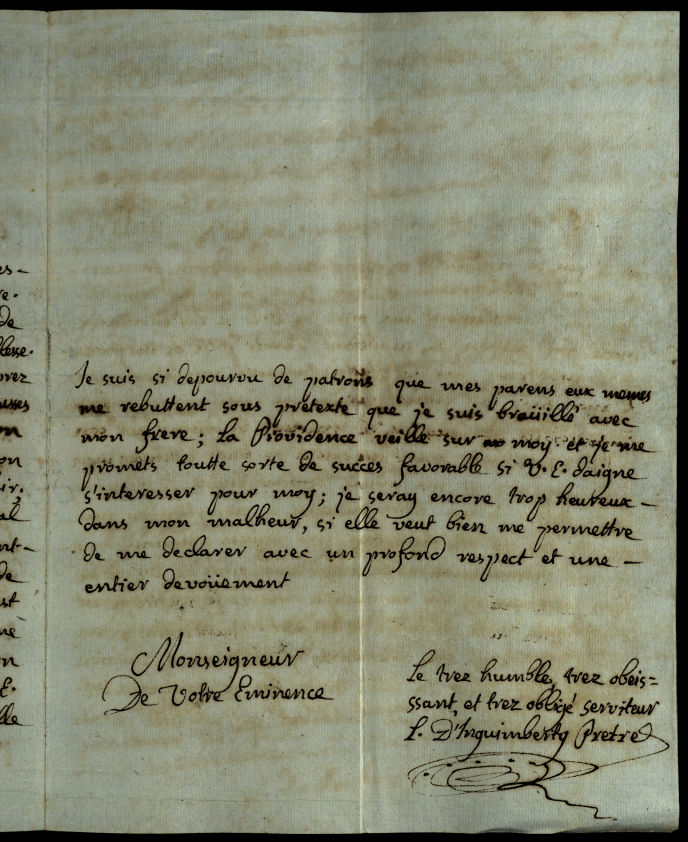 Je suis si depourvu de patrons que mes parens eux memes
me rebuttent sous pretexte que je suis broüillé avec
mon frere; la Providence veille sur moy et je me
promets toutte sorte de succes favorable si V. E. daigne
s'interesser pour moy; je seray encore trop heureux -
dans mon malheur, si elle veut bien me permettre
de me declarer avec un profond respect et une -
entier devoüement
Monseigneur
De Votre Eminence
Le trez humble, trez obeis=
ssant, et trez obligé serviteur
D'Inguimberty Pretre